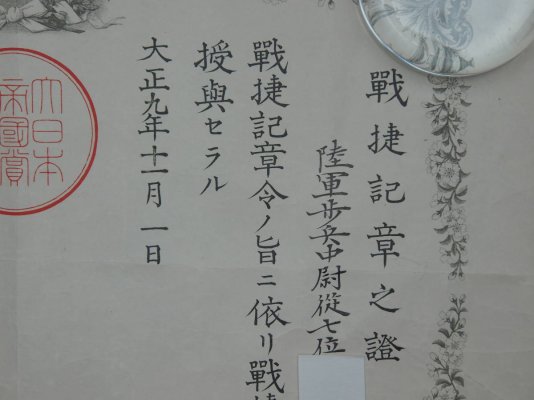 戰捷記章之證
陸軍步兵中尉從七位
戰捷記章令ノ旨ニ依リ戰捷
授與セラル
大正九年十一月一日
大日本
帝國賞